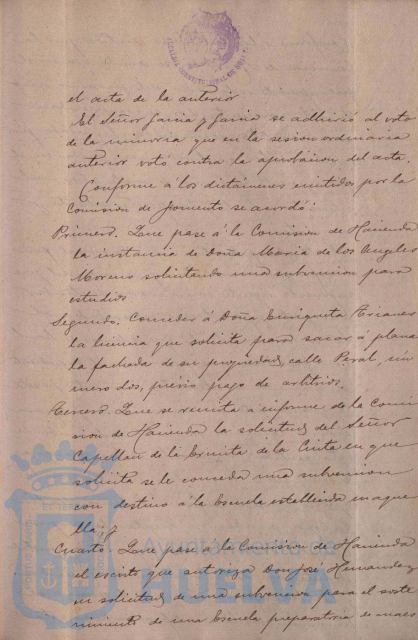 el acta de la anterior
El Señor Garcia y Garcia se adhirió al voto
de la minoria que en la sesion ordinaria
anterior votó contra la aprobacion del acta.
Conforme á los dictámenes emitidos por la
Comision de Fomento se acordó:
Primero. Que pase á la Comision de Hacienda
la instancia de Doña Maria de los Angeles
Moreno solicitando una subvencion para
estudios
Segundo. Conceder á Doña Enriqueta Trianes
la licencia que solicita para sacar á plana
la fachada de su propiedad, calle Peral, nú
mero dos, previo pago de arbitrios.
Tercero. Que se remita á informe de la Comi
sion de Hacienda la solicitud del Señor
Capellan de la Ermita de la Cinta en que
solicita se le conceda una subvencion
con destino á la Escuela establecida en aque
lla; y
Cuarto. Que pase á la Comision de Hacienda
el escrito que autoriza Don José Hernandez
en solicitud de una subvencion para el soste
nimiento de una Escuela preparatoria de maes
Ayuntamiento de
HUELVA